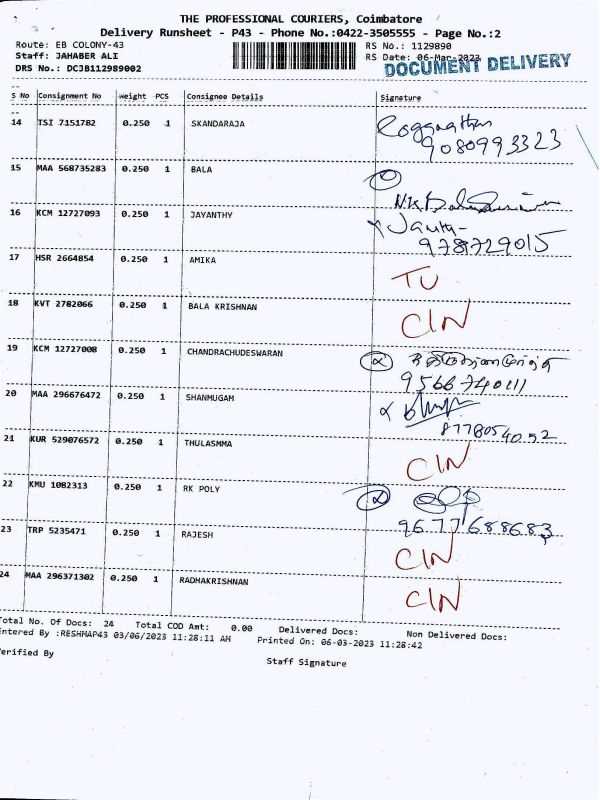 THE PROFESSIONAL COURIERS, Coimbatore
Delivery Runsheet - P43 - Phone No.:0422-3505555 - Page No.:2
Route: EB COLONY-43 RS No.: 1129890
Staff: JAHABER ALI RS Date: 06-Mar-2023
DRS No.: DCJB112989002 DOCUMENT DELIVERY
S No Consignment No Weight PCS Consignee Details Signature
14 TSI 7151782 0.250 1 SKANDARAJA
9080993323
15 MAA 568735283 0.250 1 BALA
16 KCM 12727093 0.250 1 JAYANTHY
978729015
17 HSR 2664854 0.250 1 AMIKA TU
18 KVT 2782066 0.250 1 BALA KRISHNAN CIN
19 KCM 12727008 0.250 1 CHANDRACHUDESWARAN
9566740111
20 MAA 296676472 0.250 1 SHANMUGAM
8778054052
21 KUR 529076572 0.250 1 THULASMMA CIN
22 KMU 1082313 0.250 1 RK POLY
9677688683
23 TRP 5235471 0.250 1 RAJESH CIN
24 MAA 296371302 0.250 1 RADHAKRISHNAN CIN
Total No. Of Docs: 24 Total COD Amt: 0.00 Delivered Docs: Non Delivered Docs:
Entered By :RESHMAP43 03/06/2023 11:28:11 AM Printed On: 06-03-2023 11:28:42
Verified By Staff Signature